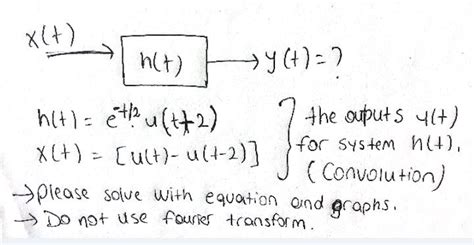 x(t)
h(t) → y(t) = ?
h(t) = e^-t/2 u(t+2)
x(t) = [u(t) - u(t-2)]
the outputs y(t)
for system h(t).
(Convolution)
→ please solve with equation and graphs.
→ Do not use fourier transform.